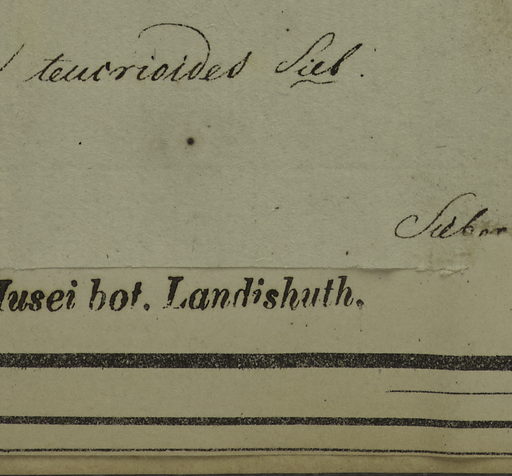 teucrioides Sieb.
Sieber
Musei bot. Landishuth.